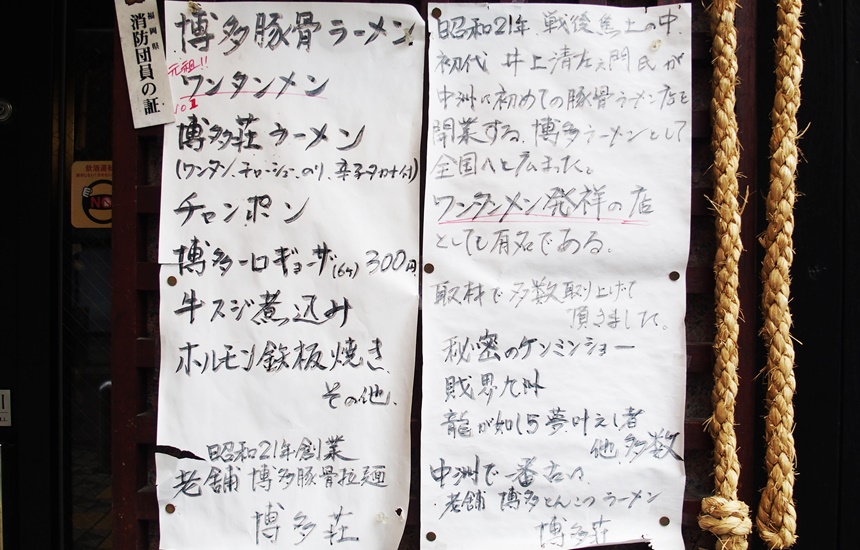 福岡県
消防団員の証
博多豚骨ラーメン
元祖!!
ワンタンメン
No1
博多荘ラーメン
(ワンタン、チャーシュー、のり、辛子タカナ付)
チャンポン
博多一口ギョーザ(6ケ)300円
牛スジ煮込み
ホルモン鉄板焼き
その他、
昭和21年創業
老舗 博多豚骨拉麺
博多荘
昭和21年、戦後焦土の中、
初代 井上清左ヱ門氏が
中洲に初めての豚骨ラーメン店を
開業する。博多ラーメンとして
全国へと広まった。
ワンタンメン発祥の店
としても有名である。
取材で多数取り上げて
頂きました。
秘密のケンミンショー
龍が如く5 夢、叶えし者
他、多数
中洲で一番古い
老舗 博多とんこつラーメン
博多荘